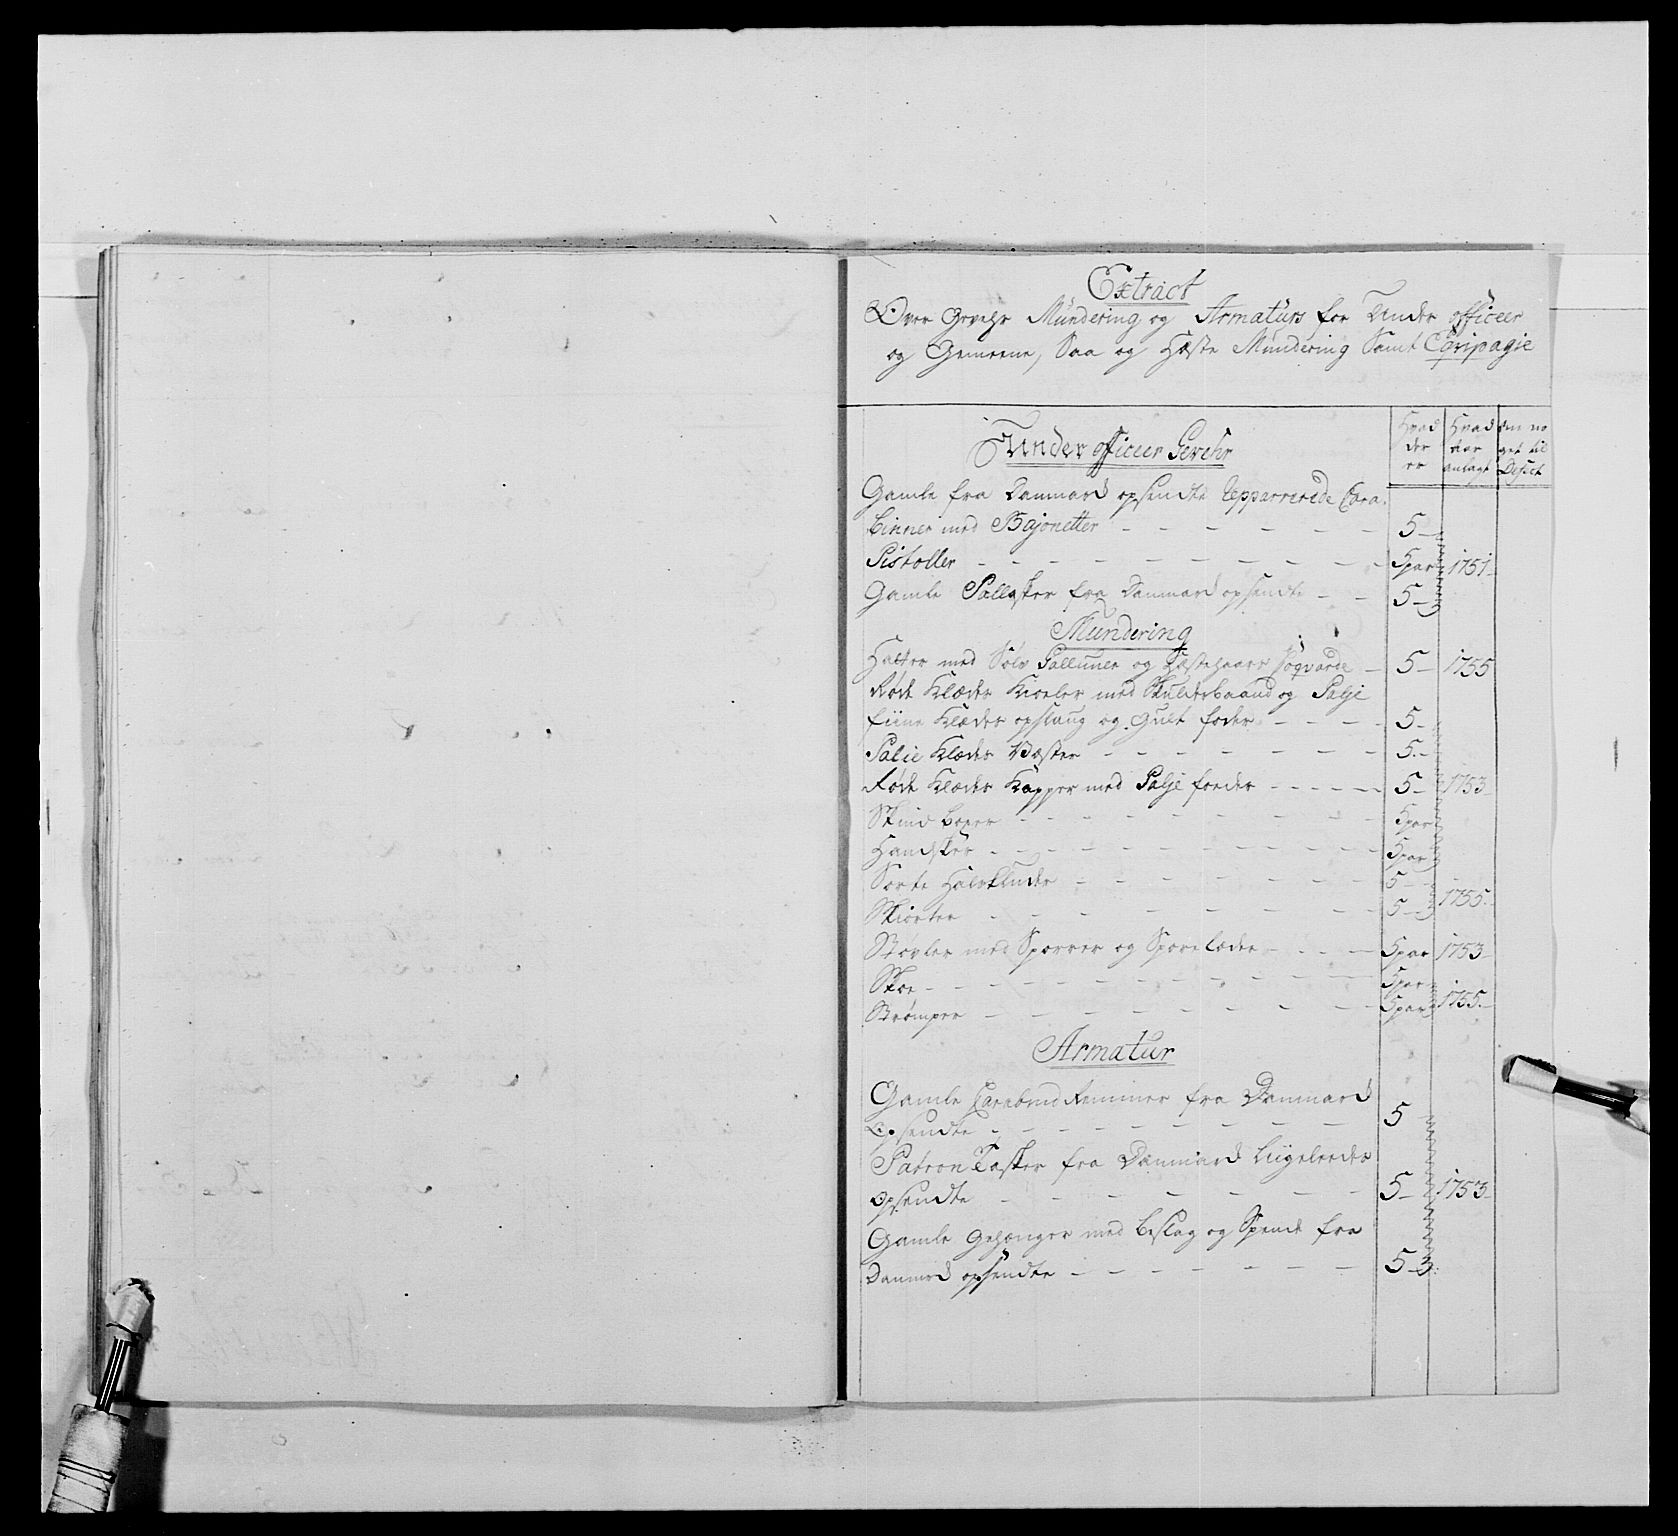 Extract
Over Gevehr Mundering og Armaturs for Under officeer
og Gemeene, Saa og Hæste Mundering Samt Eqvipagie
Hvad Hvad om no
der aar get til
er anlagt Defect
Under officeer Gevehr
Gamle fra Danmard opsendte Repparrerede Cara-
binner med Bajonetter - - - - - - 5-
Pistoller - - - - - - - - 5par 1751-
Gamle Pallasker fra Danmard opsendte - - 5-
Mundering
Hatter med Sølv Galluner og Hæstehaars - 5- 1755
Røde Klædes Kioler med Skulderbaand og Palje
fiine Klædes opslaug og gult foder - - - - 5-
Palie Klædes Væster - - - - - - 5.-
Røde Klædes Kapper med Palje foeder - - - - - 5- 1753-
Skind boxer - - - - - - - 5par
Handsker - - - - - - - - 5par
Sorte Halskluder - - - - - - - 5-
1755.
Skiorter - - - - - - - - 5-
Støvler med Sporrer og Sporelæder - - - - 5par 1753-
Skoe - - - - - - - - - 5par
Strømper - - - - - - - 5par 1755.-
Armatur
Gamle Carabind Remmer fra Danmard
Opsendte - - - - - - - - - 5
Patron Tasker fra Danmard Liigeleedes
Opsendte - - - - - - - 5- 1753-
Gamle Gehænger med beslag og Spende fra
Danmrd opsendte - - - - - - - - 5-